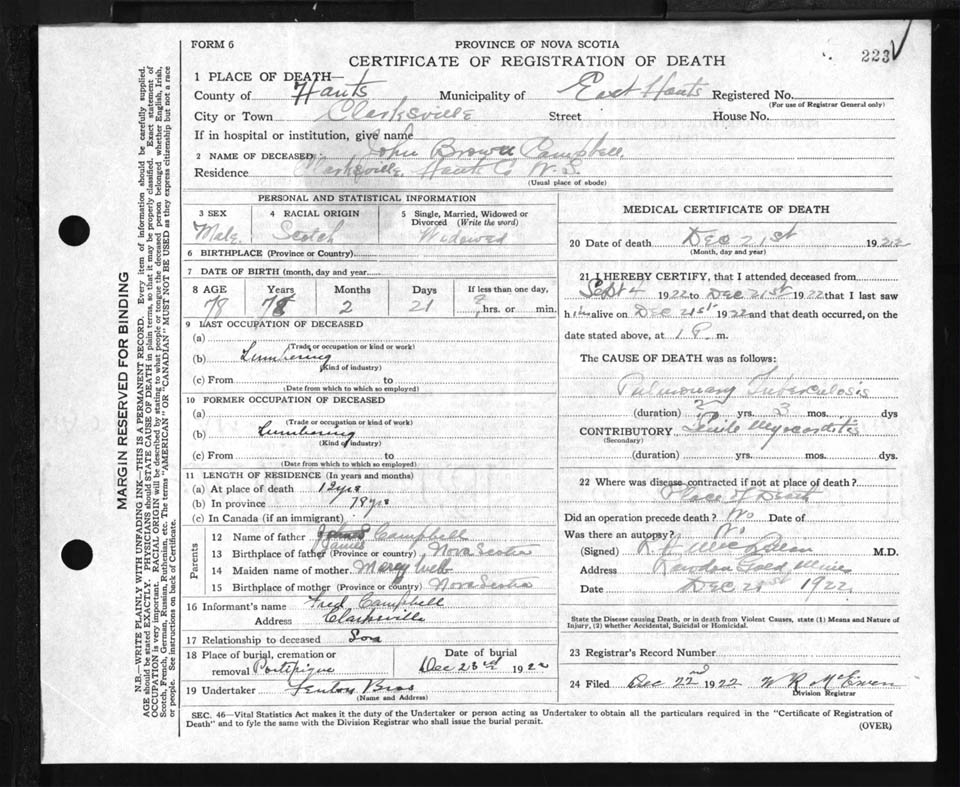 FORM 6
PROVINCE OF NOVA SCOTIA
223
CERTIFICATE OF REGISTRATION OF DEATH
1 PLACE OF DEATH—
County of Hants Municipality of East Hants Registered No.
(For use of Registrar General only)
City or Town Clarksville Street House No.
If in hospital or institution, give name
2 NAME OF DECEASED: John Brown Campbell
Residence Clarksville, Hants Co N.S.
(Usual place of abode)
PERSONAL AND STATISTICAL INFORMATION
3 SEX 4 RACIAL ORIGIN 5 Single, Married, Widowed or Divorced (Write the word)
Male Scotch Widowed
6 BIRTHPLACE (Province or Country)
7 DATE OF BIRTH (month, day and year)
8 AGE Years Months Days If less than one day,
78 78 2 21 ? hrs. or min.
9 LAST OCCUPATION OF DECEASED
(a)
(Trade or occupation or kind or work)
(b) Lumbering
(Kind of industry)
(c) From to
(Date from which to which so employed)
10 FORMER OCCUPATION OF DECEASED
(a)
(Trade or occupation or kind of work)
(b) Lumbering
(Kind of industry)
(c) From to
(Date from which to which so employed)
11 LENGTH OF RESIDENCE (In years and months)
(a) At place of death 12 yrs
(b) In province 78 yrs
(c) In Canada (if an immigrant)
Parents
12 Name of father James Campbell
13 Birthplace of father (Province or country) Nova Scotia
14 Maiden name of mother Mary Webb
15 Birthplace of mother (Province or country) Nova Scotia
16 Informant's name Fred Campbell
Address Clarksville
17 Relationship to deceased Son
18 Place of burial, cremation or removal Portipique Date of burial Dec 23rd 1922
19 Undertaker Bros
(Name and Address)
MEDICAL CERTIFICATE OF DEATH
20 Date of death Dec 21st 1922
(Month, day and year)
21 I HEREBY CERTIFY, that I attended deceased from
Sept 4 1922 to Dec 21st 1922 that I last saw
him alive on Dec 21st 1922 and that death occurred, on the
date stated above, at 1 P. m.
The CAUSE OF DEATH was as follows:
Pulmonary Tuberculosis
(duration) 2 yrs. 3 mos. dys
CONTRIBUTORY Senile Myocarditis
(Secondary)
(duration) yrs. mos. dys.
22 Where was disease contracted if not at place of death?
Place of Death
Did an operation precede death? No Date of
Was there an autopsy? No
(Signed) M.D.
Address Rawdon Gold Mines
Date Dec 21st 1922
State the Disease causing Death, or in death from Violent Causes, state (1) Means and Nature of Injury, (2) whether Accidental, Suicidal or Homicidal.
23 Registrar's Record Number
24 Filed Dec 22nd 1922 W R McEwen
Division Registrar
SEC. 46—Vital Statistics Act makes it the duty of the Undertaker or person acting as Undertaker to obtain all the particulars required in the "Certificate of Registration of
Death" and to fyle the same with the Division Registrar who shall issue the burial permit.
(OVER)
MARGIN RESERVED FOR BINDING
N.B.—WRITE PLAINLY WITH UNFADING INK—THIS IS A PERMANENT RECORD. Every item of information should be carefully supplied.
AGE should be stated EXACTLY. PHYSICIANS should STATE CAUSE OF DEATH in plain terms, so that it may be properly classified. Exact statement of
OCCUPATION is very important. RACIAL ORIGIN will be described by stating to what people or tongue the deceased person belonged whether English, Irish,
Scotch, French, German, Russian, Ruthenian, etc. The terms "AMERICAN" OR "CANADIAN" MUST NOT BE USED as they express citizenship but not a race
or people. See instructions on back of Certificate.